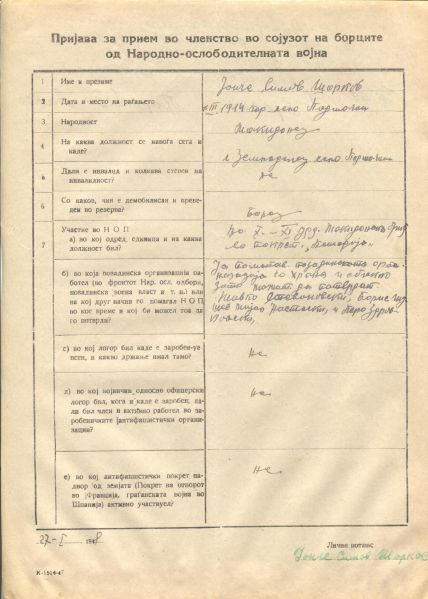 Пријава за прием во членство во сојузот на борците
од Народно-ослободителната војна
1 Име и презиме
Јонче Симов Шарков
2 Дата и место на раѓањето
III 1914 год село
3 Народност
Македонец
4 На каква должност се наоѓа сега и
каде?
Земјоделец село
5 Дали е инвалид и колкава степен на
инвалидност?
не
6 Со каков, чин е демобилисан и преве-
ден во резерва?
Борац
7 Участие во Н О П
а) во кој одред, единица и на каква
должност бил?
Во X – XI
Македонска
б) во која позадинска организација ра-
ботел (во фронтот Нар. осл. одбори,
позадинска војна власт и т. н.) или
на кој друг начин го помагал Н О П
во кое време и кој би можел тоа да
го потврди?
За
со храна и облекло
можат да потврдат
с) во кој логор бил каде е заробен-у-
ваен, и какво држање имал тамо?
не
д) во кој војнички односно офицерски
логор бил, кога и каде е заробен, да-
ли бил член и активно работел во за-
робеничките антифашистички органи-
зации?
не
е) во кој антифашистички покрет на-
двор од земјата (Покрет на отпорот
во Франција, граѓанската војна во
Шпанија) активно участвуел?
не
27-I 1948
Личен потпис
Јонче Симов Шарков